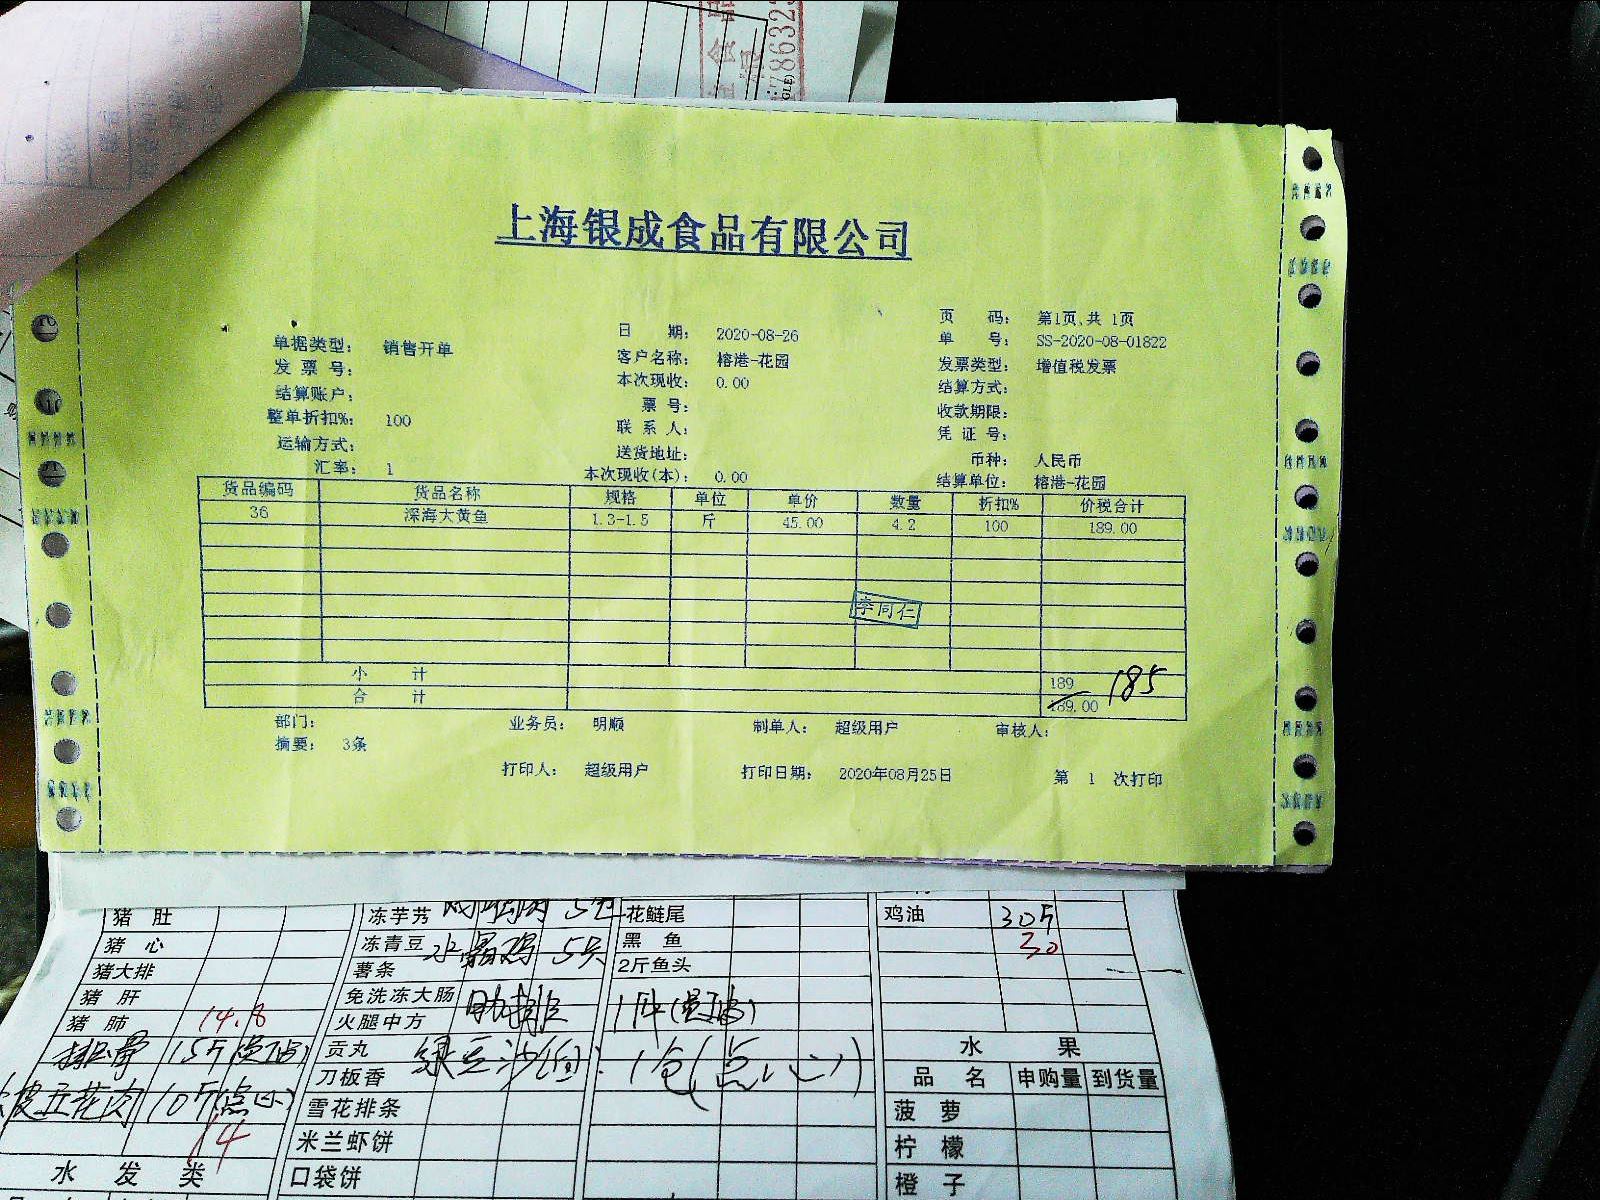 上海银成食品有限公司
单据类型: 销售开单 日 期: 2020-08-26 页 码: 第1页,共 1页
发 票 号: 客户名称: 榕港-花园 单 号: SS-2020-08-01822
结算账户: 本次现收: 0.00 发票类型: 增值税发票
整单折扣%: 100 票 号: 结算方式:
运输方式: 联 系 人: 收款期限:
汇率: 1 送货地址: 凭 证 号:
本次现收(本): 0.00 币种: 人民币
结算单位: 榕港-花园
货品编码 货品名称 规格 单位 单价 数量 折扣% 价税合计
36 深海大黄鱼 1.3-1.5 斤 45.00 4.2 100 189.00
李同仁
小 计 189
合 计 189.00 185
部门: 业务员: 明顺 制单人: 超级用户 审核人:
摘要: 3条
打印人: 超级用户 打印日期: 2020年08月25日 第 1 次打印
猪 肚 冻芋艿 花鲢尾 鸡油 30斤
猪 心 冻青豆 水晶鸡 5只 黑 鱼 30
猪大排 薯条 2斤鱼头
猪 肝 免洗冻大肠 肋排
猪 肺 14.8 火腿中方
贡丸 绿豆沙 1包(点心) 水 果
刀板香 品 名 申购量 到货量
五花肉 10斤(点心) 雪花排条 菠 萝
14 米兰虾饼 柠 檬
水 发 类 口袋饼 橙 子